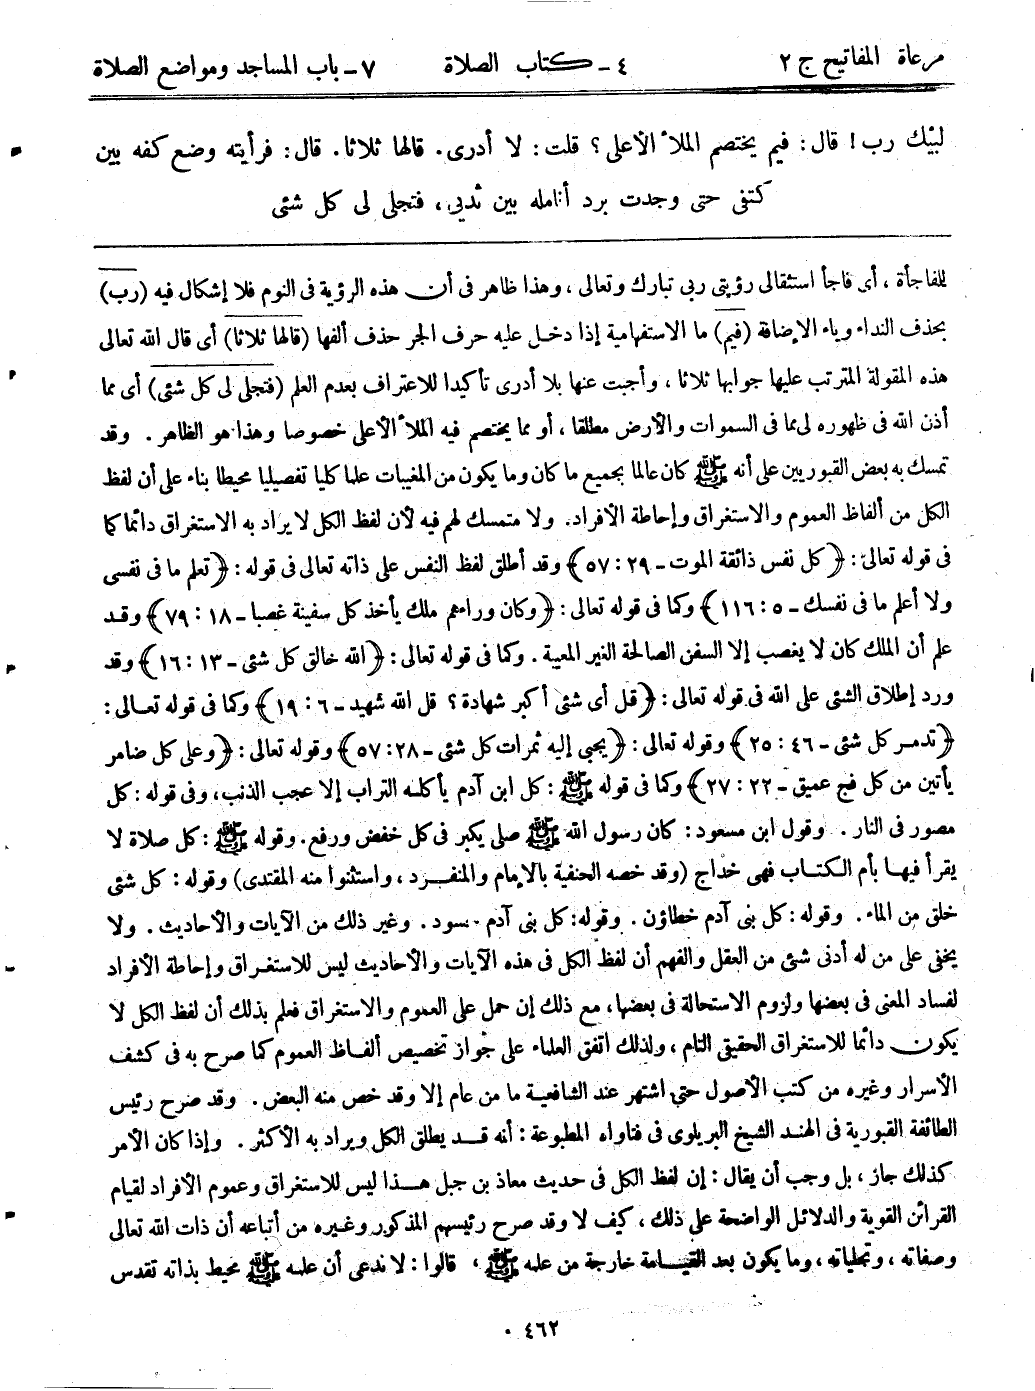 مرعاة المفاتيح ج ٢ ٤ - كتاب الصلاة ٧ - باب المساجد ومواضع الصلاة
لبيك رب! قال: فيم يختصم الملأ الأعلى؟ قلت: لا أدرى. قالها ثلاثا. قال: فرأيته وضع كفه بين
كتفى حتى وجدت برد أنامله بين ثديى، فتجلى لى كل شئى
للفاجأة، أى فاجأ استثقالى رؤيتى ربى تبارك وتعالى، وهذا ظاهر فى أن هذه الرؤية فى النوم فلا إشكال فيه (رب)
بحذف النداء وياء الإضافة (فيم) ما الاستفهامية إذا دخل عليه حرف الجر حذف ألفها (قالها ثلاثا) أى قال الله تعالى
هذه المقولة المترتب عليها جوابها ثلاثا، وأجبت عنها بلا أدرى تأكيدا للاعتراف بعدم العلم (فتجلى لى كل شئى) أى مما
أذن الله فى ظهوره لى مما فى السموات والأرض مطلقا، أو مما يختصم فيه الملأ الأعلى خصوصا وهذا هو الظاهر. وقد
تمسك به بعض القبوريين على أنه ﷺ كان عالما بجميع ما كان وما يكون من المغيبات علما كليا تفصيليا محيطا بناء على أن لفظ
الكل من ألفاظ العموم والاستغراق وإحاطة الأفراد. ولا متمسك لهم فيه لأن لفظ الكل لا يراد به الاستغراق دائما كما
فى قوله تعالى: ﴿كل نفس ذائقة الموت - ٢٩: ٥٧﴾ وقد أطلق لفظ النفس على ذاته تعالى فى قوله: ﴿تعلم ما فى نفسى
ولا أعلم ما فى نفسك - ٥: ١١٦﴾ وكما فى قوله تعالى: ﴿وكان وراءهم ملك يأخذ كل سفينة غصبا - ١٨: ٧٩﴾ وقد
علم أن الملك كان لا يغصب إلا السفن الصالحة الغير المعيبة. وكما فى قوله تعالى: ﴿الله خالق كل شئى - ١٣: ١٦﴾ وقد
ورد إطلاق الشئى على الله فى قوله تعالى: ﴿قل أى شئى أكبر شهادة؟ قل الله شهيد - ٦: ١٩﴾ وكما فى قوله تعالى:
﴿تدمر كل شئى - ٤٦: ٢٥﴾ وقوله تعالى: ﴿يجبى إليه ثمرات كل شئى - ٢٨: ٥٧﴾ وقوله تعالى: ﴿وعلى كل ضامر
يأتين من كل فج عميق - ٢٢: ٢٧﴾ وكما فى قوله ﷺ: كل ابن آدم يأكله التراب إلا عجب الذنب، وفى قوله: كل
مصور فى النار. وقول ابن مسعود: كان رسول الله ﷺ صلى يكبر فى كل خفض ورفع. وقوله ﷺ: كل صلاة لا
يقرأ فيها بأم الكتاب فهى خداج (وقد خصه الحنفية بالإمام والمنفرد، واستثنوا منه المقتدى) وقوله: كل شئى
خلق من الماء. وقوله: كل بنى آدم خطاؤن. وقوله: كل بنى آدم حسود. وغير ذلك من الآيات والأحاديث. ولا
يخفى على من له أدنى شئى من العقل والفهم أن لفظ الكل فى هذه الآيات والأحاديث ليس للاستغراق وإحاطة الأفراد
لفساد المعنى فى بعضها ولزوم الاستحالة فى بعضها، مع ذلك إن حمل على العموم والاستغراق فعلم بذلك أن لفظ الكل لا
يكون دائما للاستغراق الحقيقى التام، ولذلك اتفق العلماء على جواز تخصيص ألفاظ العموم كما صرح به فى كشف
الأسرار وغيره من كتب الأصول حتى اشتهر عند الشافعية ما من عام إلا وقد خص منه البعض. وقد صرح رئيس
الطائفة القبورية فى الهند الشيخ البريلوى فى فتاواه المطبوعة: أنه قد يطلق الكل ويراد به الأكثر. وإذا كان الأمر
كذلك جاز، بل وجب أن يقال: إن لفظ الكل فى حديث معاذ بن جبل هذا ليس للاستغراق وعموم الأفراد لقيام
القرائن القوية والدلائل الواضحة على ذلك، كيف لا وقد صرح رئيسهم المذكور وغيره من أتباعه أن ذات الله تعالى
وصفاته، وتجلياته، وما يكون بعد القيامة خارجة من علمه ﷺ، قالوا: لا ندعى أن علمه ﷺ محيط بذاته تقدس
٤٦٢